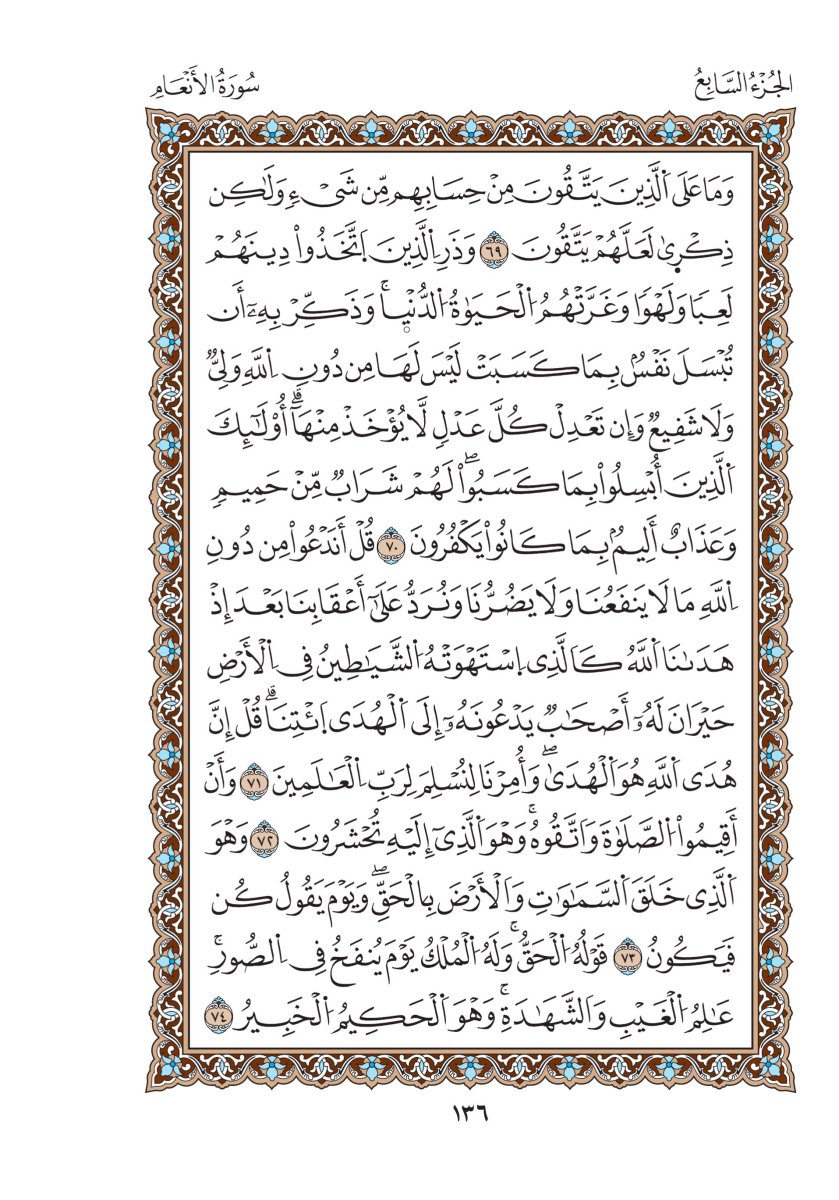 الجُزْءُ السَّابِعُ
سُورَةُ الأَنْعَامِ
وَمَا عَلَى اَ۬لَّذِينَ يَتَّقُونَ مِنْ حِسَابِهِم مِّن شَےْءٖ وَلَٰكِن
ذِكْر۪يٰ لَعَلَّهُمْ يَتَّقُونَ ٦٩ وَذَرِ اِ۬لَّذِينَ اَ۪تَّخَذُواْ دِينَهُمْ
لَعِباٗ وَلَهْواٗ وَغَرَّتْهُمُ اُ۬لْحَيَوٰةُ اُ۬لدُّنْي۪اۚ وَذَكِّرْ بِهِۦٓ أَن
تُبْسَلَ نَفْسُۢ بِمَا كَسَبَتْ لَيْسَ لَهَا مِن دُونِ اِ۬للَّهِ وَلِيّٞ
وَلَا شَفِيعٞ وَإِن تَعْدِلْ كُلَّ عَدْلٖ لَّا يُؤْخَذْ مِنْهَآۗ أُوْلَٰٓئِكَ
اَ۬لَّذِينَ أُبْسِلُواْ بِمَا كَسَبُواْۖ لَهُمْ شَرَابٞ مِّنْ حَمِيمٖ
وَعَذَابٌ أَلِيمُۢ بِمَا كَانُواْ يَكْفُرُونَ ٧٠ قُلْ أَنَدْعُواْ مِن دُونِ
اِ۬للَّهِ مَا لَا يَنفَعُنَا وَلَا يَضُرُّنَا وَنُرَدُّ عَلَىٰٓ أَعْقَابِنَا بَعْدَ إِذْ
هَدَىٰنَا اَ۬للَّهُ كَالَّذِي اِ۪سْتَهْوَتْهُ اُ۬لشَّيَٰطِينُ فِي اِ۬لْأَرْضِ
حَيْرَانَ لَهُۥٓ أَصْحَٰبٞ يَدْعُونَهُۥٓ إِلَى اَ۬لْهُدَى اَ۪ئْتِنَاۗ قُلْ إِنَّ
هُدَى اَ۬للَّهِ هُوَ اَ۬لْهُدَىٰۖ وَأُمِرْنَا لِنُسْلِمَ لِرَبِّ اِ۬لْعَٰلَمِينَ ٧١ وَأَنْ
أَقِيمُواْ اُ۬لصَّلَوٰةَ وَاَتَّقُوهُۚ وَهْوَ اَ۬لَّذِيٓ إِلَيْهِ تُحْشَرُونَ ٧٢ وَهْوَ
اَ۬لَّذِي خَلَقَ اَ۬لسَّمَٰوَٰتِ وَالْأَرْضَ بِالْحَقِّۖ وَيَوْمَ يَقُولُ كُن
فَيَكُونُ ٧٣ قَوْلُهُ اُ۬لْحَقُّۚ وَلَهُ اُ۬لْمُلْكُ يَوْمَ يُنفَخُ فِي اِ۬لصُّورِۚ
عَٰلِمُ اُ۬لْغَيْبِ وَالشَّهَٰدَةِۚ وَهْوَ اَ۬لْحَكِيمُ اُ۬لْخَبِيرُ ٧٤
١٣٦